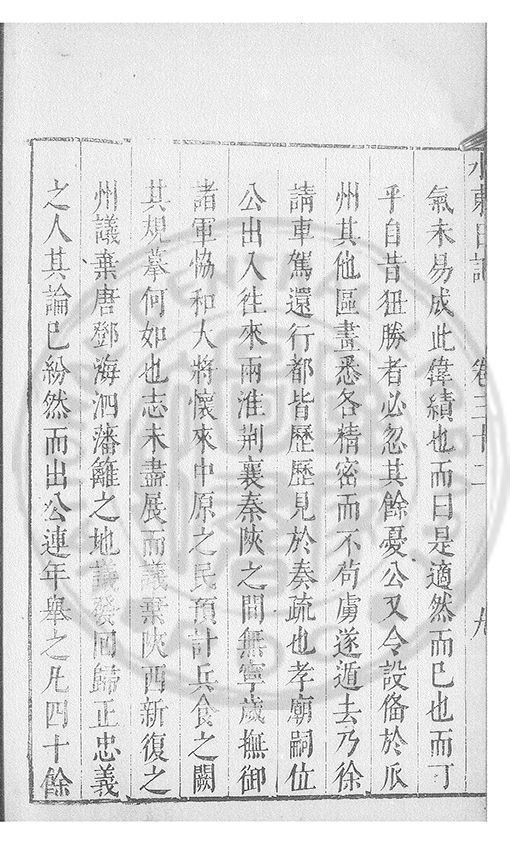 水東日記 卷三十二 九
氣未易成此偉績也而曰是適然而已也而可
乎自昔狃勝者必忽其餘憂公又令設俻於瓜
州其他區畫悉各精密而不苟虜遂遁去乃徐
請車駕還行都皆歷歷見於奏疏也孝廟嗣位
公出入往來兩淮荆襄秦陝之間無寧歲撫御
諸軍恊和大將懷來中原之民預計兵食之闕
其規摹何如也志未盡展而議棄陝西新復之
州議棄唐鄧海泗藩籬之地議發回歸正忠義
之人其論已紛然而出公連年舉之凡四十餘